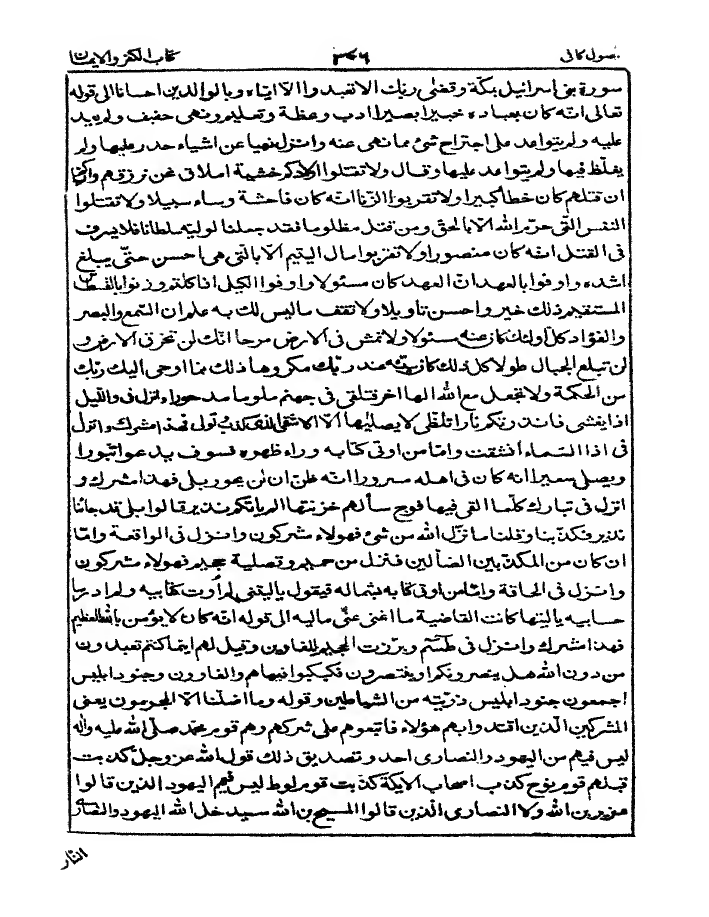 اصول کافی ٣٧٦ کتاب الکفر والایمان
سورة بنی اسرائیل بمکة وقضٰی ربك الا تعبدوا الا ایاه وبالوالدین احسانا الی قوله
تعالی انه کان بعباده خبیرا بصیرا ادب وعظة وتعلیم ونهی خفیف ولم یعد
علیه ولم یتواعد علی اجتراح شئ مما نهی عنه وانزل نهیا عن اشیاء حذر علیها ولم
یغلظ فیها ولم یتواعد علیها وقال ولا تقتلوا اولادکم خشیة املاق نحن نرزقهم وایاکم
ان قتلهم کان خطأ کبیرا ولا تقربوا الزنا انه کان فاحشة وساء سبیلا ولا تقتلوا
النفس التی حرم الله الا بالحق ومن قتل مظلوما فقد جعلنا لولیه سلطانا فلا یسرف
فی القتل انه کان منصورا ولا تقربوا مال الیتیم الا بالتی هی احسن حتّی یبلغ
اشده واوفوا بالعهد ان العهد کان مسئولا واوفوا الکیل اذا کلتم وزنوا بالقسطاس
المستقیم ذلك خیر واحسن تاویلا ولا تقف ما لیس لك به علم ان السّمع والبصر
والفؤاد کل اولئك کان عنه مسئولا ولا تمش فی الارض مرحا انّك لن تخرق الارض و
لن تبلغ الجبال طولا کل ذلك کان سیّئه عند ربّك مکروها ذلك مما اوحی الیك ربّك
من الحکمة ولا تجعل مع الله الها اخر فتلقی فی جهنم ملوما مدحورا وانزل فی واللیل
اذا یغشی فانذرتکم نارا تلظّی لا یصلیٰها الّا الاشقی الذی کذب وتولی فهذا مشرك وانزل
فی اذا السّماء انشقت وامّا من اوتی کتابه وراء ظهره فسوف یدعوا ثبورا
ویصلی سعیرا انه کان فی اهله مسرورا انه ظنّ ان لن یحور بلی فهذا مشرك و
انزل فی تبارك کلّما القی فیها فوج سألهم خزنتها الم یاتکم نذیر قالوا بلی قد جائنا
نذیر فکذبنا وقلنا ما نزّل الله من شئ فهؤلاء مشرکون وانزل فی الواقعة وامّا
ان کان من المکذبین الضالین فنزل من حمیم وتصلیة جحیم فهؤلاء مشرکون
وانزل فی الحاقة وامّا من اوتی کتابه بشماله فیقول یالیتنی لم اُوت کتابیه ولم ادر ما
حسابیه یالیتها کانت القاضیة ما اغنی عنّی مالیه الی قوله انّه کان لا یؤمن بالله العظیم
فهذا مشرك وانزل فی طسٓمٓ وبرّزت الجحیم للغاوین وقیل لهم اینما کنتم تعبدون
من دون الله هل ینصرونکم او ینتصرون فکبکبوا فیها هم والغاوون وجنود ابلیس
اجمعون جنود ابلیس ذرّیّته من الشیاطین وقوله وما اضلّنا الا المجرمون یعنی
المشرکین الّذین اقتدوا بهم هؤلاء فاتبعوهم علی شرکهم وهم قوم محمد صلی الله علیه واله
لیس فیهم من الیهود والنصاری احد وتصدیق ذلك قول الله عز وجل کذبت
قبلهم قوم نوح کذب اصحاب الایکة کذّبت قوم لوط لیس فیهم الیهود الذین قالوا
عزیر بن الله ولا النصاری الّذین قالوا المسیح بن الله سیدخل الله الیهود والنصاری
النّار